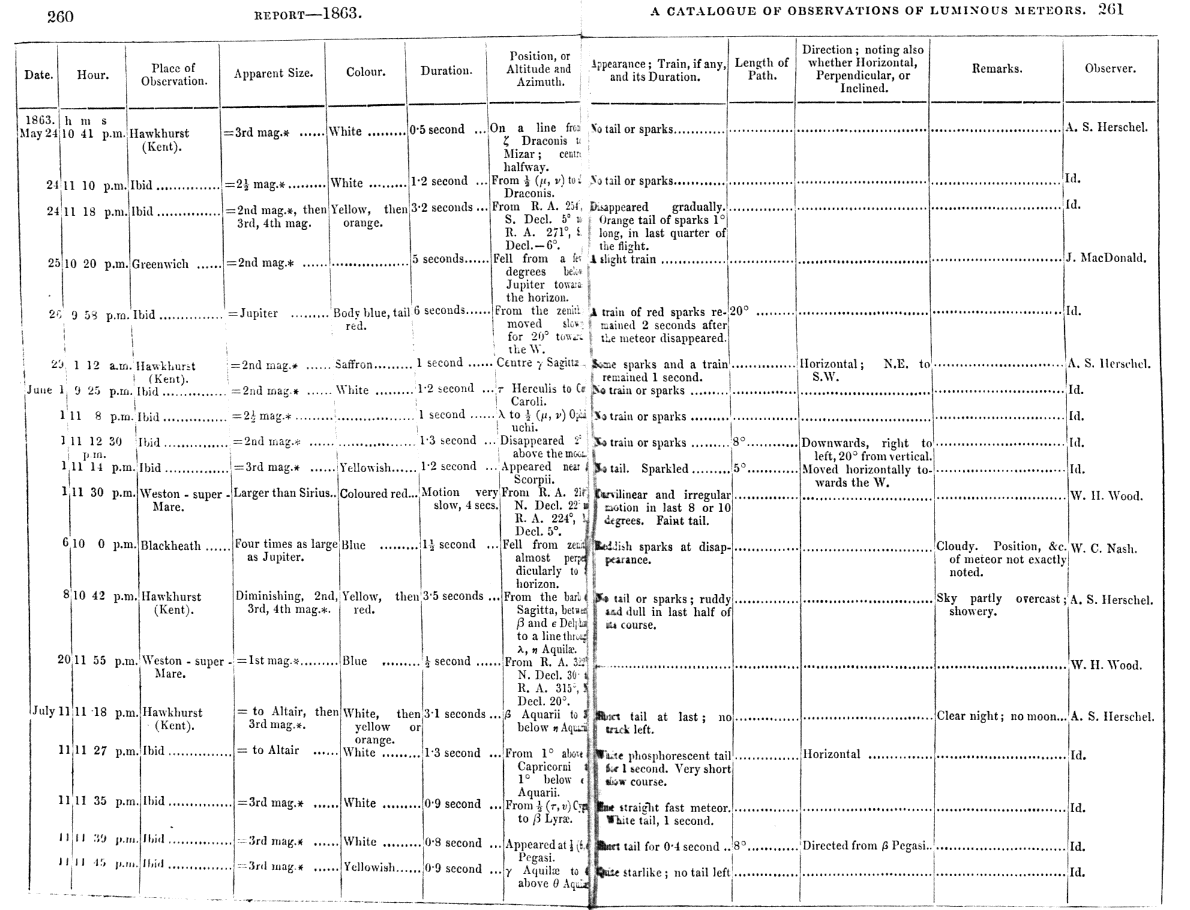 260 REPORT—1863.
A CATALOGUE OF OBSERVATIONS OF LUMINOUS METEORS. 261
Date. Hour. Place of Observation. Apparent Size. Colour. Duration. Position, or Altitude and Azimuth. Appearance; Train, if any, and its Duration. Length of Path. Direction; noting also whether Horizontal, Perpendicular, or Inclined. Remarks. Observer.
1863. h m s
May 24 10 41 p.m. Hawkhurst =3rd mag.* ...... White ......... 0·5 second ... On a line No tail or sparks........... A. S. Herschel.
(Kent). ζ Draconis
Mizar;
halfway.
24 11 10 p.m. Ibid ............. =2½ mag.*........ White ......... 1·2 second ... From ½ (μ, ν) to No tail or sparks........... Id.
Draconis.
24 11 18 p.m. Ibid ............. =2nd mag.*, then Yellow, then 3·2 seconds ... From R. A. Disappeared gradually. Id.
3rd, 4th mag. orange. S. Decl. 5° Orange tail of sparks 1°
R. A. 271°, long, in last quarter of
Decl.—6°. the flight.
25 10 20 p.m. Greenwich ...... =2nd mag.* ...... ............... 5 seconds...... Fell from a A slight train .............. J. MacDonald.
degrees
Jupiter
the horizon.
26 9 58 p.m. Ibid ............. =Jupiter ......... Body blue, tail 6 seconds...... From the A train of red sparks re- 20° ......... Id.
red. moved mained 2 seconds after
for 20° the meteor disappeared.
the W.
29 1 12 a.m. Hawkhurst =2nd mag.* ...... Saffron......... 1 second ...... Centre γ Some sparks and a train Horizontal; N.E. to A. S. Herschel.
(Kent). remained 1 second. S.W.
June 1 9 25 p.m. Ibid ............. =2nd mag.* ...... White ......... 1·2 second ... τ Herculis to No train or sparks ........ Id.
Caroli.
1 11 8 p.m. Ibid ............. =2½ mag.* ........ ............... 1 second ...... λ to ½ (μ, ν) No train or sparks ........ Id.
uchi.
1 11 12 30 Ibid =2nd mag.* ...... ............... 1·3 second ... Disappeared No train or sparks ........ 8°............ Downwards, right to Id.
p.m. above the left, 20° from vertical.
1 11 14 p.m. Ibid ............. =3rd mag.* ...... Yellowish...... 1·2 second ... Appeared near No tail. Sparkled ....... 5°............ Moved horizontally to- Id.
Scorpii. wards the W.
1 11 30 p.m. Weston - super - Larger than Sirius.. Coloured red... Motion very From R. A. Curvilinear and irregular W. H. Wood.
Mare. slow, 4 secs. N. Decl. 22° motion in last 8 or 10
R. A. 224°, degrees. Faint tail.
Decl. 5°.
6 10 0 p.m. Blackheath ...... Four times as large Blue ......... 1½ second ... Fell from Reddish sparks at disap- Cloudy. Position, &c. W. C. Nash.
as Jupiter. almost pearance. of meteor not exactly
dicularly to noted.
horizon.
8 10 42 p.m. Hawkhurst Diminishing, 2nd, Yellow, then 3·5 seconds ... From the No tail or sparks; ruddy Sky partly overcast; A. S. Herschel.
(Kent). 3rd, 4th mag.*. red. Sagitta, and dull in last half of showery.
β and ε its course.
to a line
λ, η Aquilæ.
20 11 55 p.m. Weston - super - =1st mag.*......... Blue ......... ½ second ..... From R. A. W. H. Wood.
Mare. N. Decl. 30°
R. A. 315°,
Decl. 20°.
July 11 11 18 p.m. Hawkhurst = to Altair, then White, then 3·1 seconds ... β Aquarii to Short tail at last; no Clear night; no moon... A. S. Herschel.
(Kent). 3rd mag.*. yellow or below η track left.
orange.
11 11 27 p.m. Ibid ............. = to Altair ...... White ......... 1·3 second ... From 1° above White phosphorescent tail Horizontal ............... Id.
Capricorni for 1 second. Very short
1° below slow course.
Aquarii.
11 11 35 p.m. Ibid ............. =3rd mag.* ...... White ......... 0·9 second ... From ½ (τ, υ) Fine straight fast meteor. Id.
to β Lyræ. White tail, 1 second.
11 11 39 p.m. Ibid ............. =3rd mag.* ...... White ......... 0·8 second ... Appeared at ½ Short tail for 0·4 second .. 8°............ Directed from β Pegasi.. Id.
Pegasi.
11 11 45 p.m. Ibid ............. =3rd mag.* ...... Yellowish...... 0·9 second ... γ Aquilæ to Quite starlike; no tail left Id.
above θ